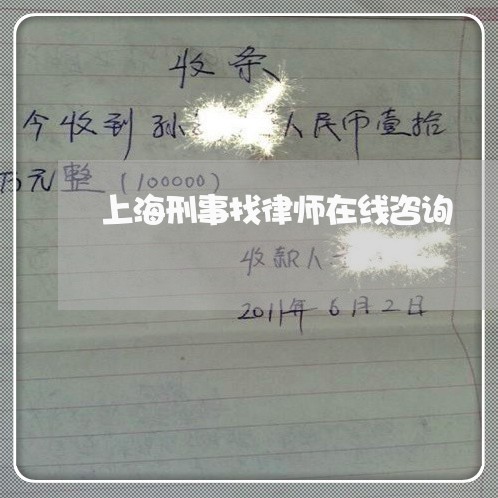 收条
今收到孙 人民币壹拾
万元整(100000)
上海刑事找律师在线咨询
收款人
2011年6月2日